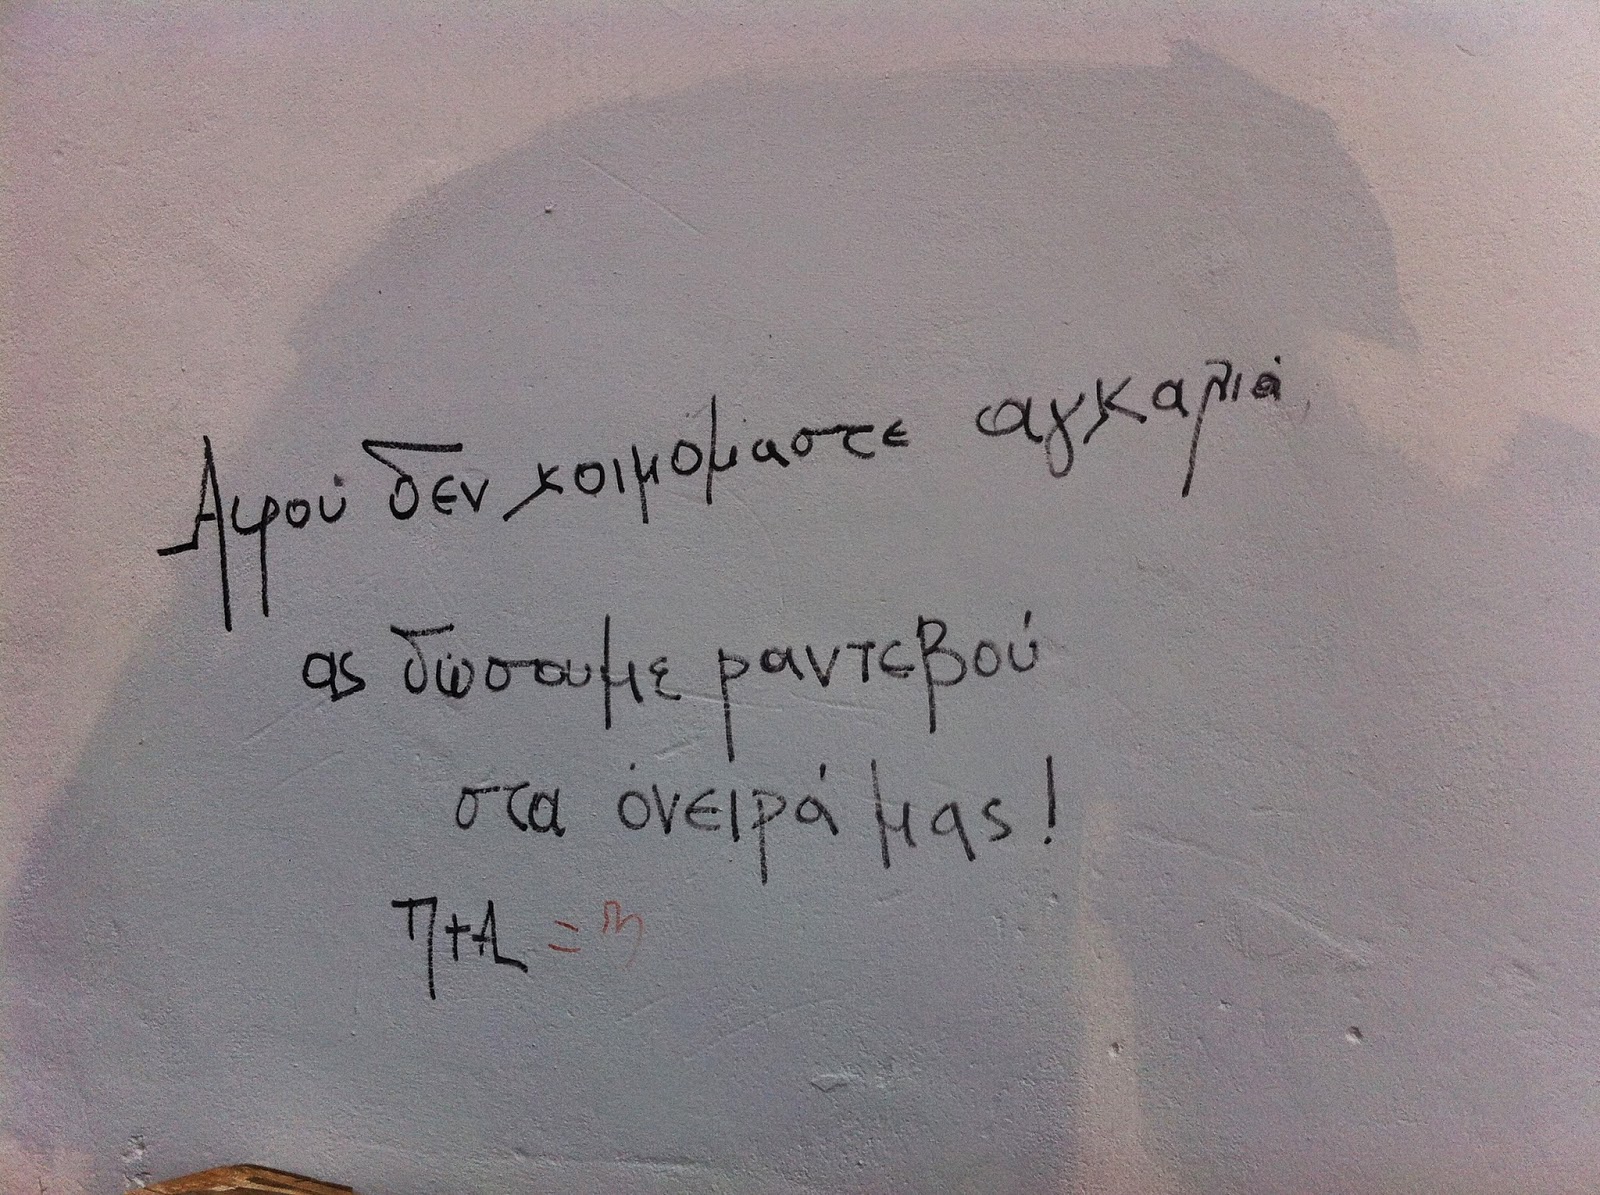 Αφού δεν κοιμόμαστε αγκαλιά
ας δώσουμε ραντεβού
στα όνειρά μας!
Π+Α =